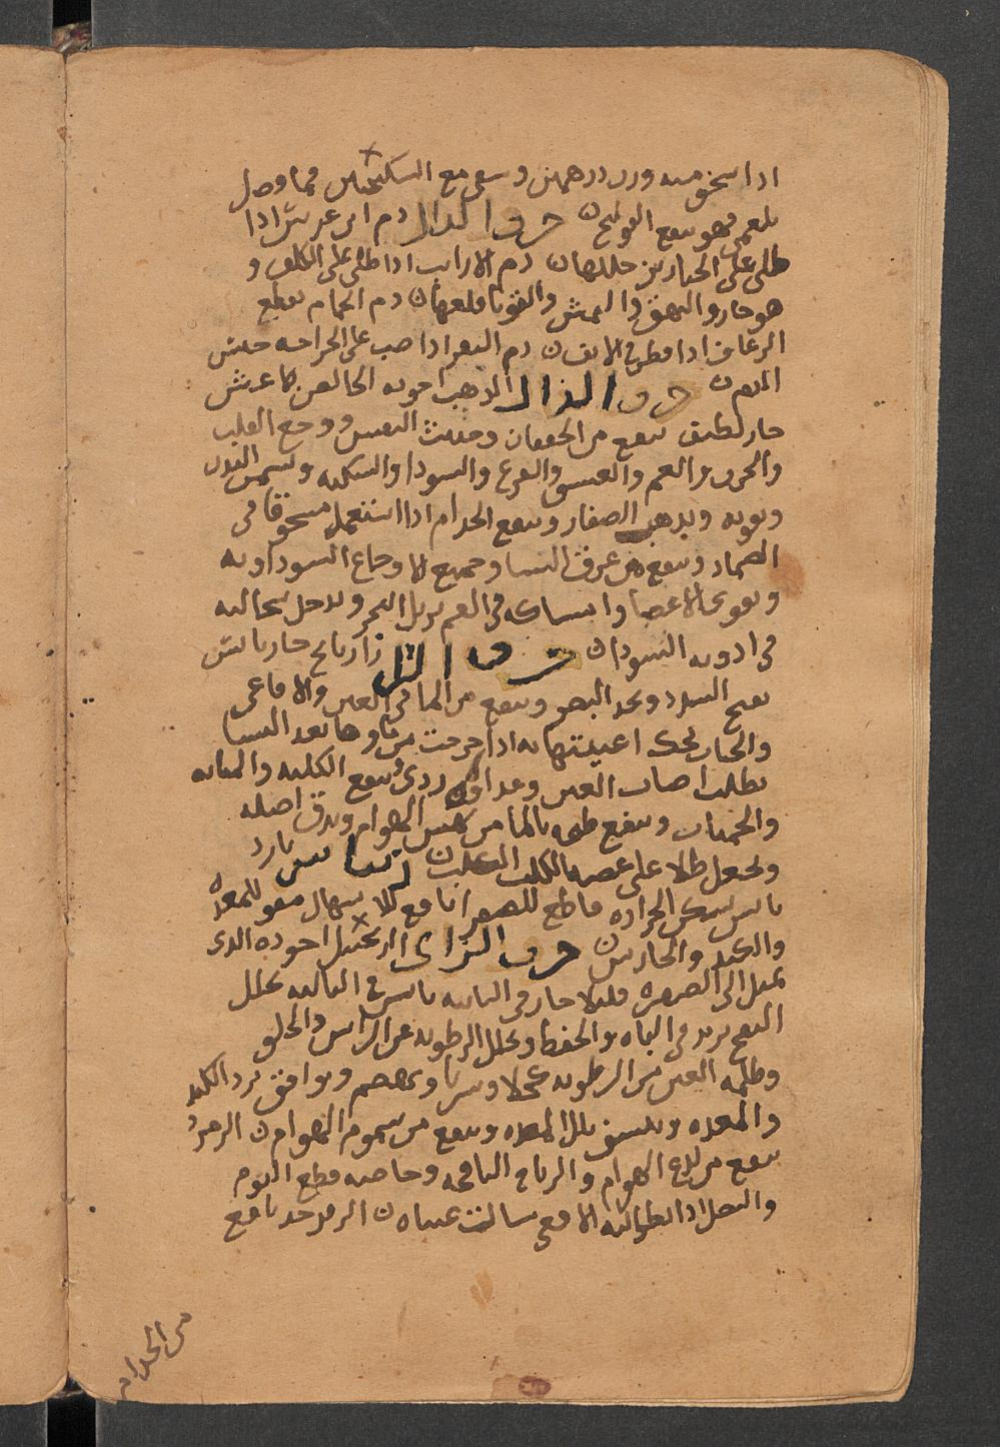 اذا سحق منه وزن درهمين وسقي مع السكنجبين فما وصل
بلغمي فهو ينفع القولنج ن حرف الدال دم ابن عرس اذا
طلي على الخنازير حللها ن دم الارانب اذا طلي على الكلف و
هو حار والبهق والنمش والقوبا قلعها ن دم الحمام يقطع
الرعاف اذا قطر في الانف ن دم البقر اذا صب على الجراحه حبس
الدم ن حرف الذال الذهب اجوده الخالص
حار لطيف ينفع من الخفقان وخبث النفس ووجع القلب
والحزن والغم والعشق والفزع والسودا والسكته ويسمن البدن
ويقويه ويذهب الصفار وينفع الجذام اذا استعمل مسحوقا في
الضماد وينفع من عرق النسا وجميع الاوجاع السوداويه
ويقوي الاعضا وامساكه في الفم يزيل البخر ويدخل سحالته
في ادويه السودا ن حرف رازيانج حار يابس
يفتح السدد ويحد البصر وينفع من الما في العين والافاعي
والحيات تحك اعينتها به اذا خرجت من ماواها بعد الشتا
وغذاوه ردي وينفع الكليه والمثانه
والحميات وينفع طبيخه بالما من نهش الهوام ويدق اصله
ويجعل طلا على عضه الكلب الكلب ن ريباس بارد
يابس يسكن الحراره قاطع للصفرا نافع للاسهال مقو للمعده
والكبد والحار ن حرف الزاى الزنجبيل اجوده الذي
يميل الى الصفره قليلا حار في الثانيه يابس في الثالثه يحلل
النفخ يزيد في الباه والحفظ ويحلل الرطوبه عن الراس والحلق
وظلمه العين من الرطوبه كحلا وشربا ويهضم ويوافق برد الكبد
والمعده وينشف بلل المعده وينفع من سموم الهوام ن الزمرد
ينفع من لدغ الهوام والرياح النافخه وخاصه قطع الدم
والنحل اذا نظر اليه الافعى سالت عيناه ن الزمرد نافع
من الجذام